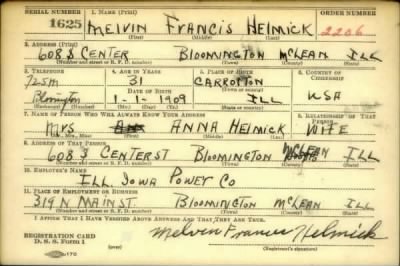 SERIAL NUMBER 1. NAME (Print) ORDER NUMBER
1625 MELVIN FRANCIS HELMICK 2206
(First) (Middle) (Last)
2. ADDRESS (Print)
608 S CENTER BLOOMINGTON MCLEAN ILL
(Number and street or R. F. D. number) (Town) (County) (State)
3. TELEPHONE 4. AGE IN YEARS 5. PLACE OF BIRTH 6. COUNTRY OF CITIZENSHIP
31 CARROLTON
DATE OF BIRTH
Blomington 1-1-1909 ILL USA
(Exchange) (Number) (Mo.) (Day) (Yr.) (State or country)
7. NAME OF PERSON WHO WILL ALWAYS KNOW YOUR ADDRESS 8. RELATIONSHIP OF THAT PERSON
MRS ANNA HELMICK WIFE
(Mr., Mrs., Miss) (First) (Middle) (Last)
9. ADDRESS OF THAT PERSON
608 S CENTER ST BLOOMINGTON MCLEAN ILL
(Number and street or R. F. D. number) (Town) (County) (State)
10. EMPLOYER'S NAME
ILL. IOWA POWER CO
11. PLACE OF EMPLOYMENT OR BUSINESS
319 N MAIN ST. BLOOMINGTON MCLEAN ILL
(Number and street or R. F. D. number) (Town) (County) (State)
I AFFIRM THAT I HAVE VERIFIED ABOVE ANSWERS AND THAT THEY ARE TRUE.
REGISTRATION CARD
D. S. S. Form 1 Melvin Francis Helmick
(Registrant's signature)